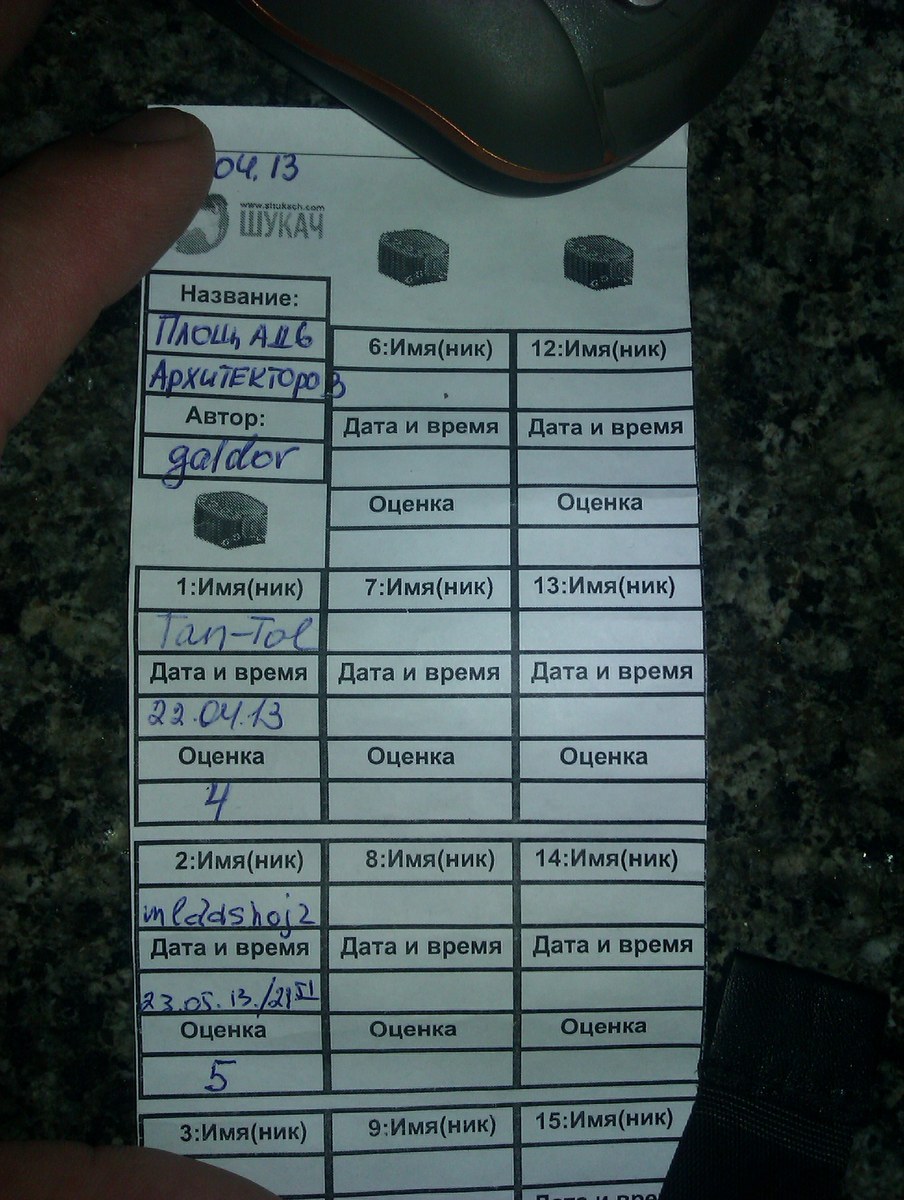 04.13
www.shukach.com
ШУКАЧ
Название:
Площадь
Архитекторов
Автор:
galdor
1:Имя(ник)
Tan-Tol
Дата и время
22.04.13
Оценка
4
2:Имя(ник)
mladshoj2
Дата и время
23.05.13./21
Оценка
5
3:Имя(ник)
6:Имя(ник)
Дата и время
Оценка
7:Имя(ник)
Дата и время
Оценка
8:Имя(ник)
Дата и время
Оценка
9:Имя(ник)
12:Имя(ник)
Дата и время
Оценка
13:Имя(ник)
Дата и время
Оценка
14:Имя(ник)
Дата и время
Оценка
15:Имя(ник)
Дата и вре